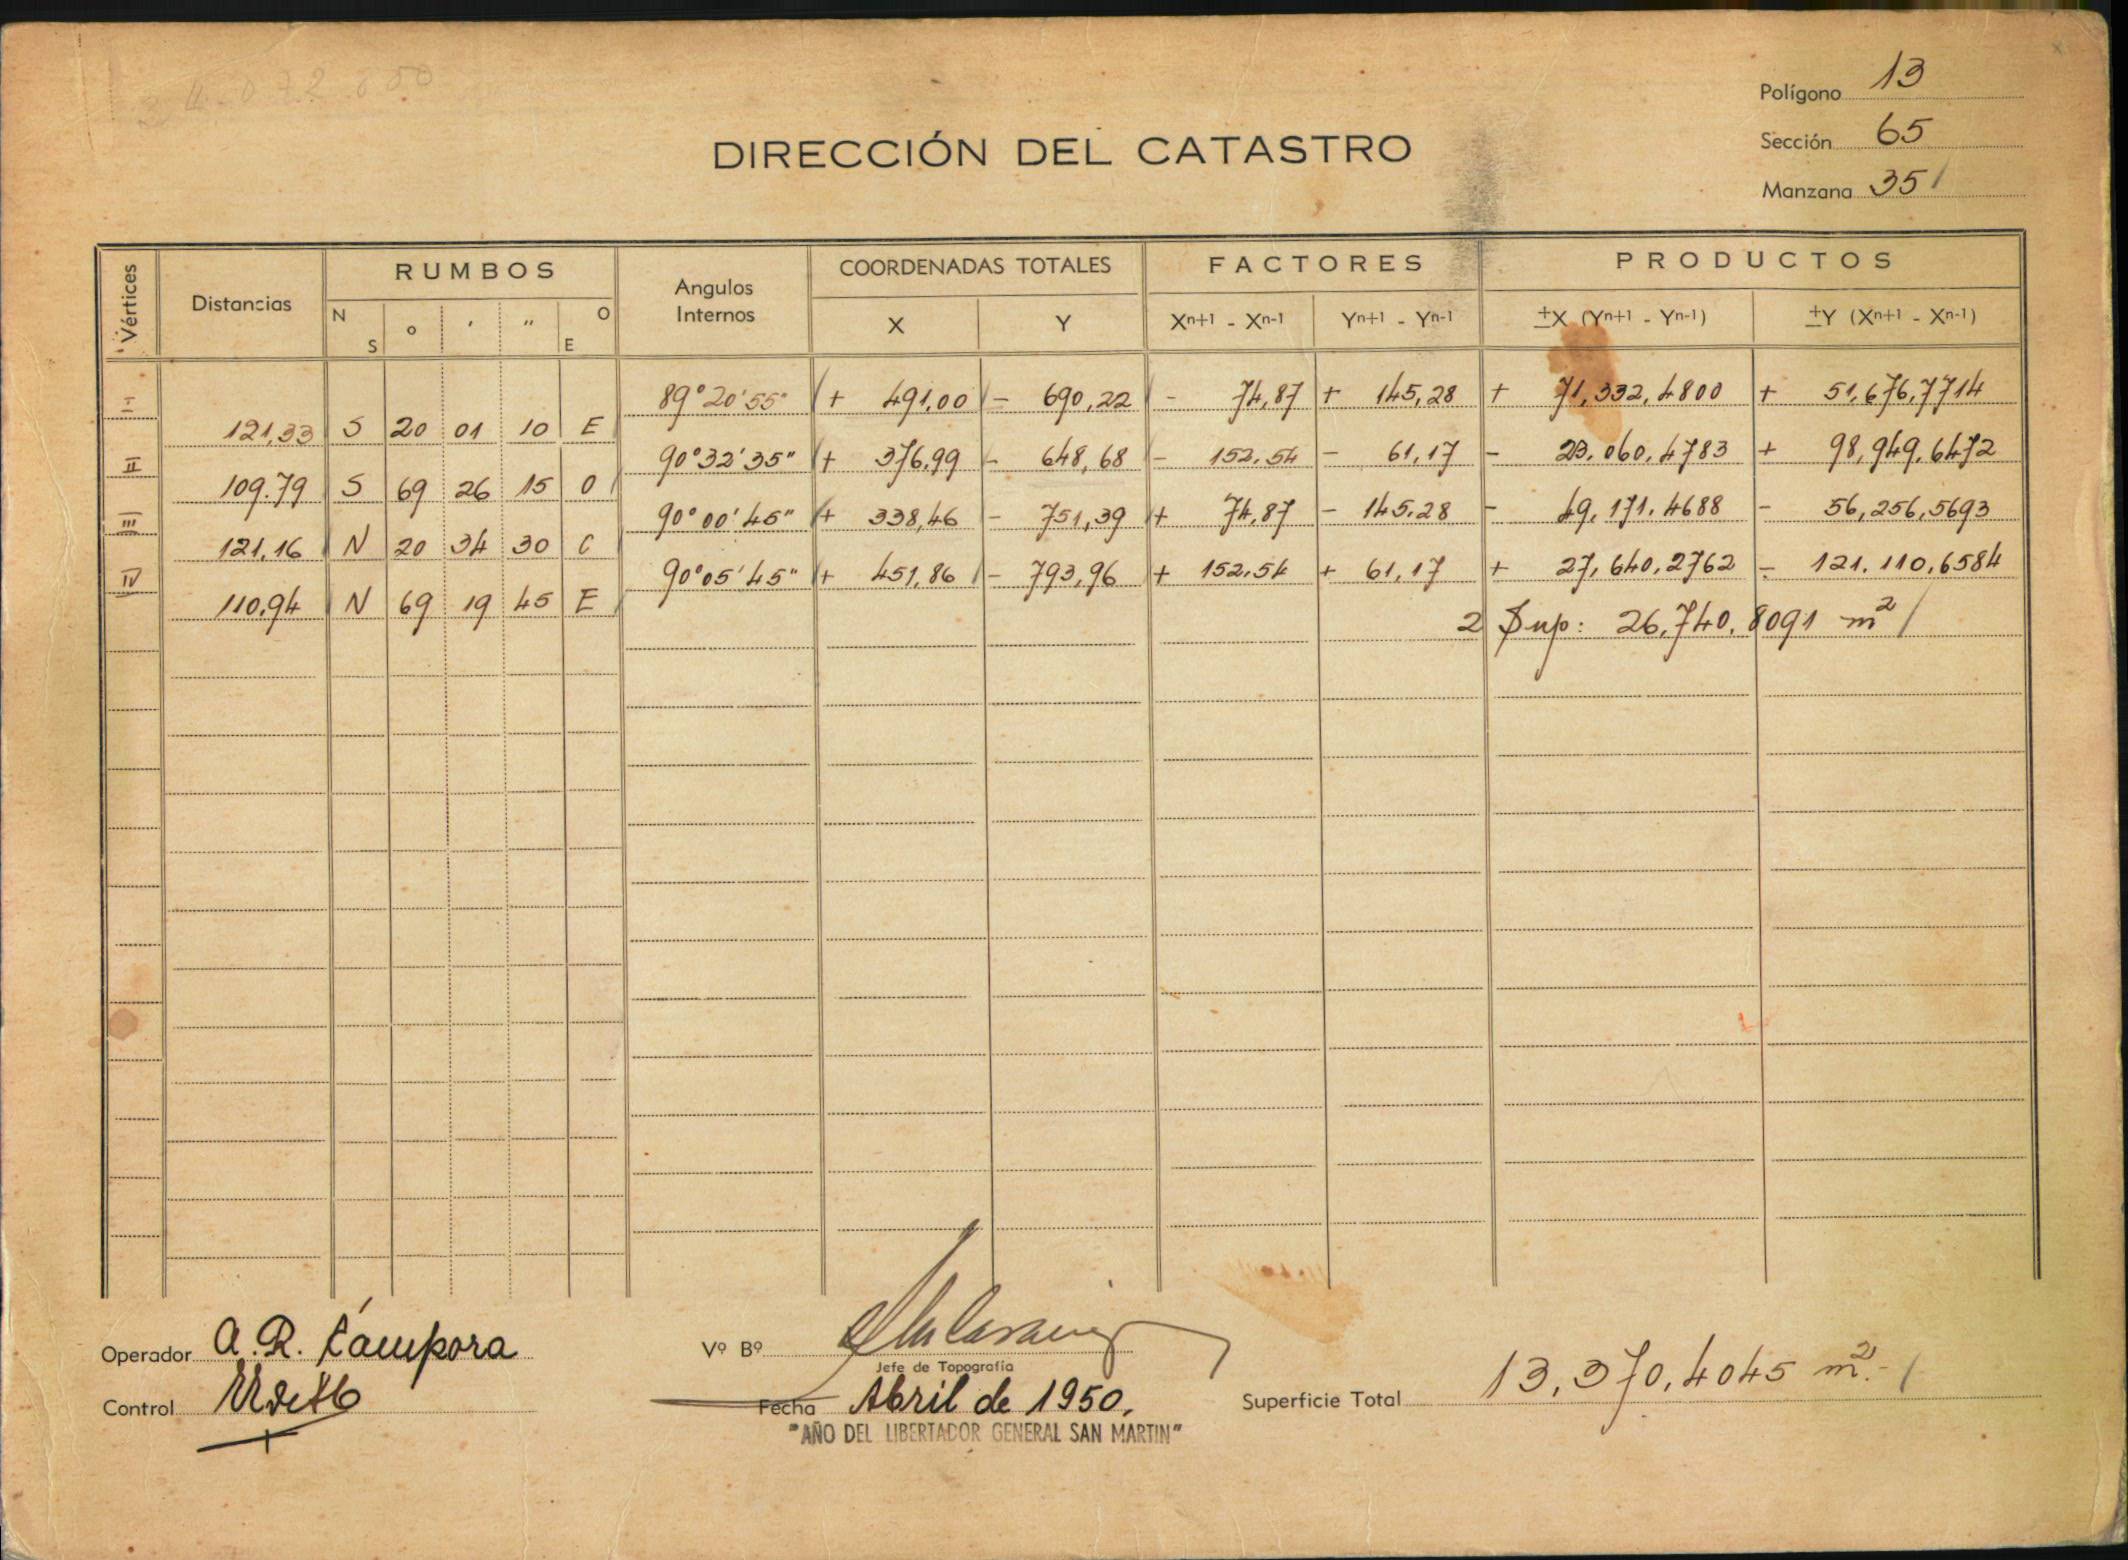 Polígono 13
Sección 65
Manzana 35
DIRECCIÓN DEL CATASTRO
Vértices Distancias RUMBOS Angulos Internos COORDENADAS TOTALES FACTORES PRODUCTOS
N S o ' " O E X Y Xn+1 - Xn-1 Yn+1 - Yn-1 ±X (Yn+1 - Yn-1) ±Y (Xn+1 - Xn-1)
I 89°20'55" + 491,00 - 690,22 - 74,87 + 145,28 + 71,332,4800 + 51,676,7714
121,33 S 20 01 10 E
II 90°32'35" + 376,99 - 648,68 - 152.54 - 61,17 - 23.060,4783 + 98,949.6472
109.79 S 69 26 15 O
III 90°00'45" + 338,46 - 751,39 + 74,87 - 145.28 - 49,171.4688 - 56,256,5693
121,16 N 20 34 30 O
IV 90°05'45" + 451,86 - 793,96 + 152.54 + 61,17 + 27,640,2762 - 121.110,6584
110,94 N 69 19 45 E
2 Sup: 26,740,8091 m²
Operador A.R. Cámpora
Vº Bº
Jefe de Topografía
Control
Fecha Abril de 1950.
Superficie Total 13,370,4045 m².-
"AÑO DEL LIBERTADOR GENERAL SAN MARTIN"